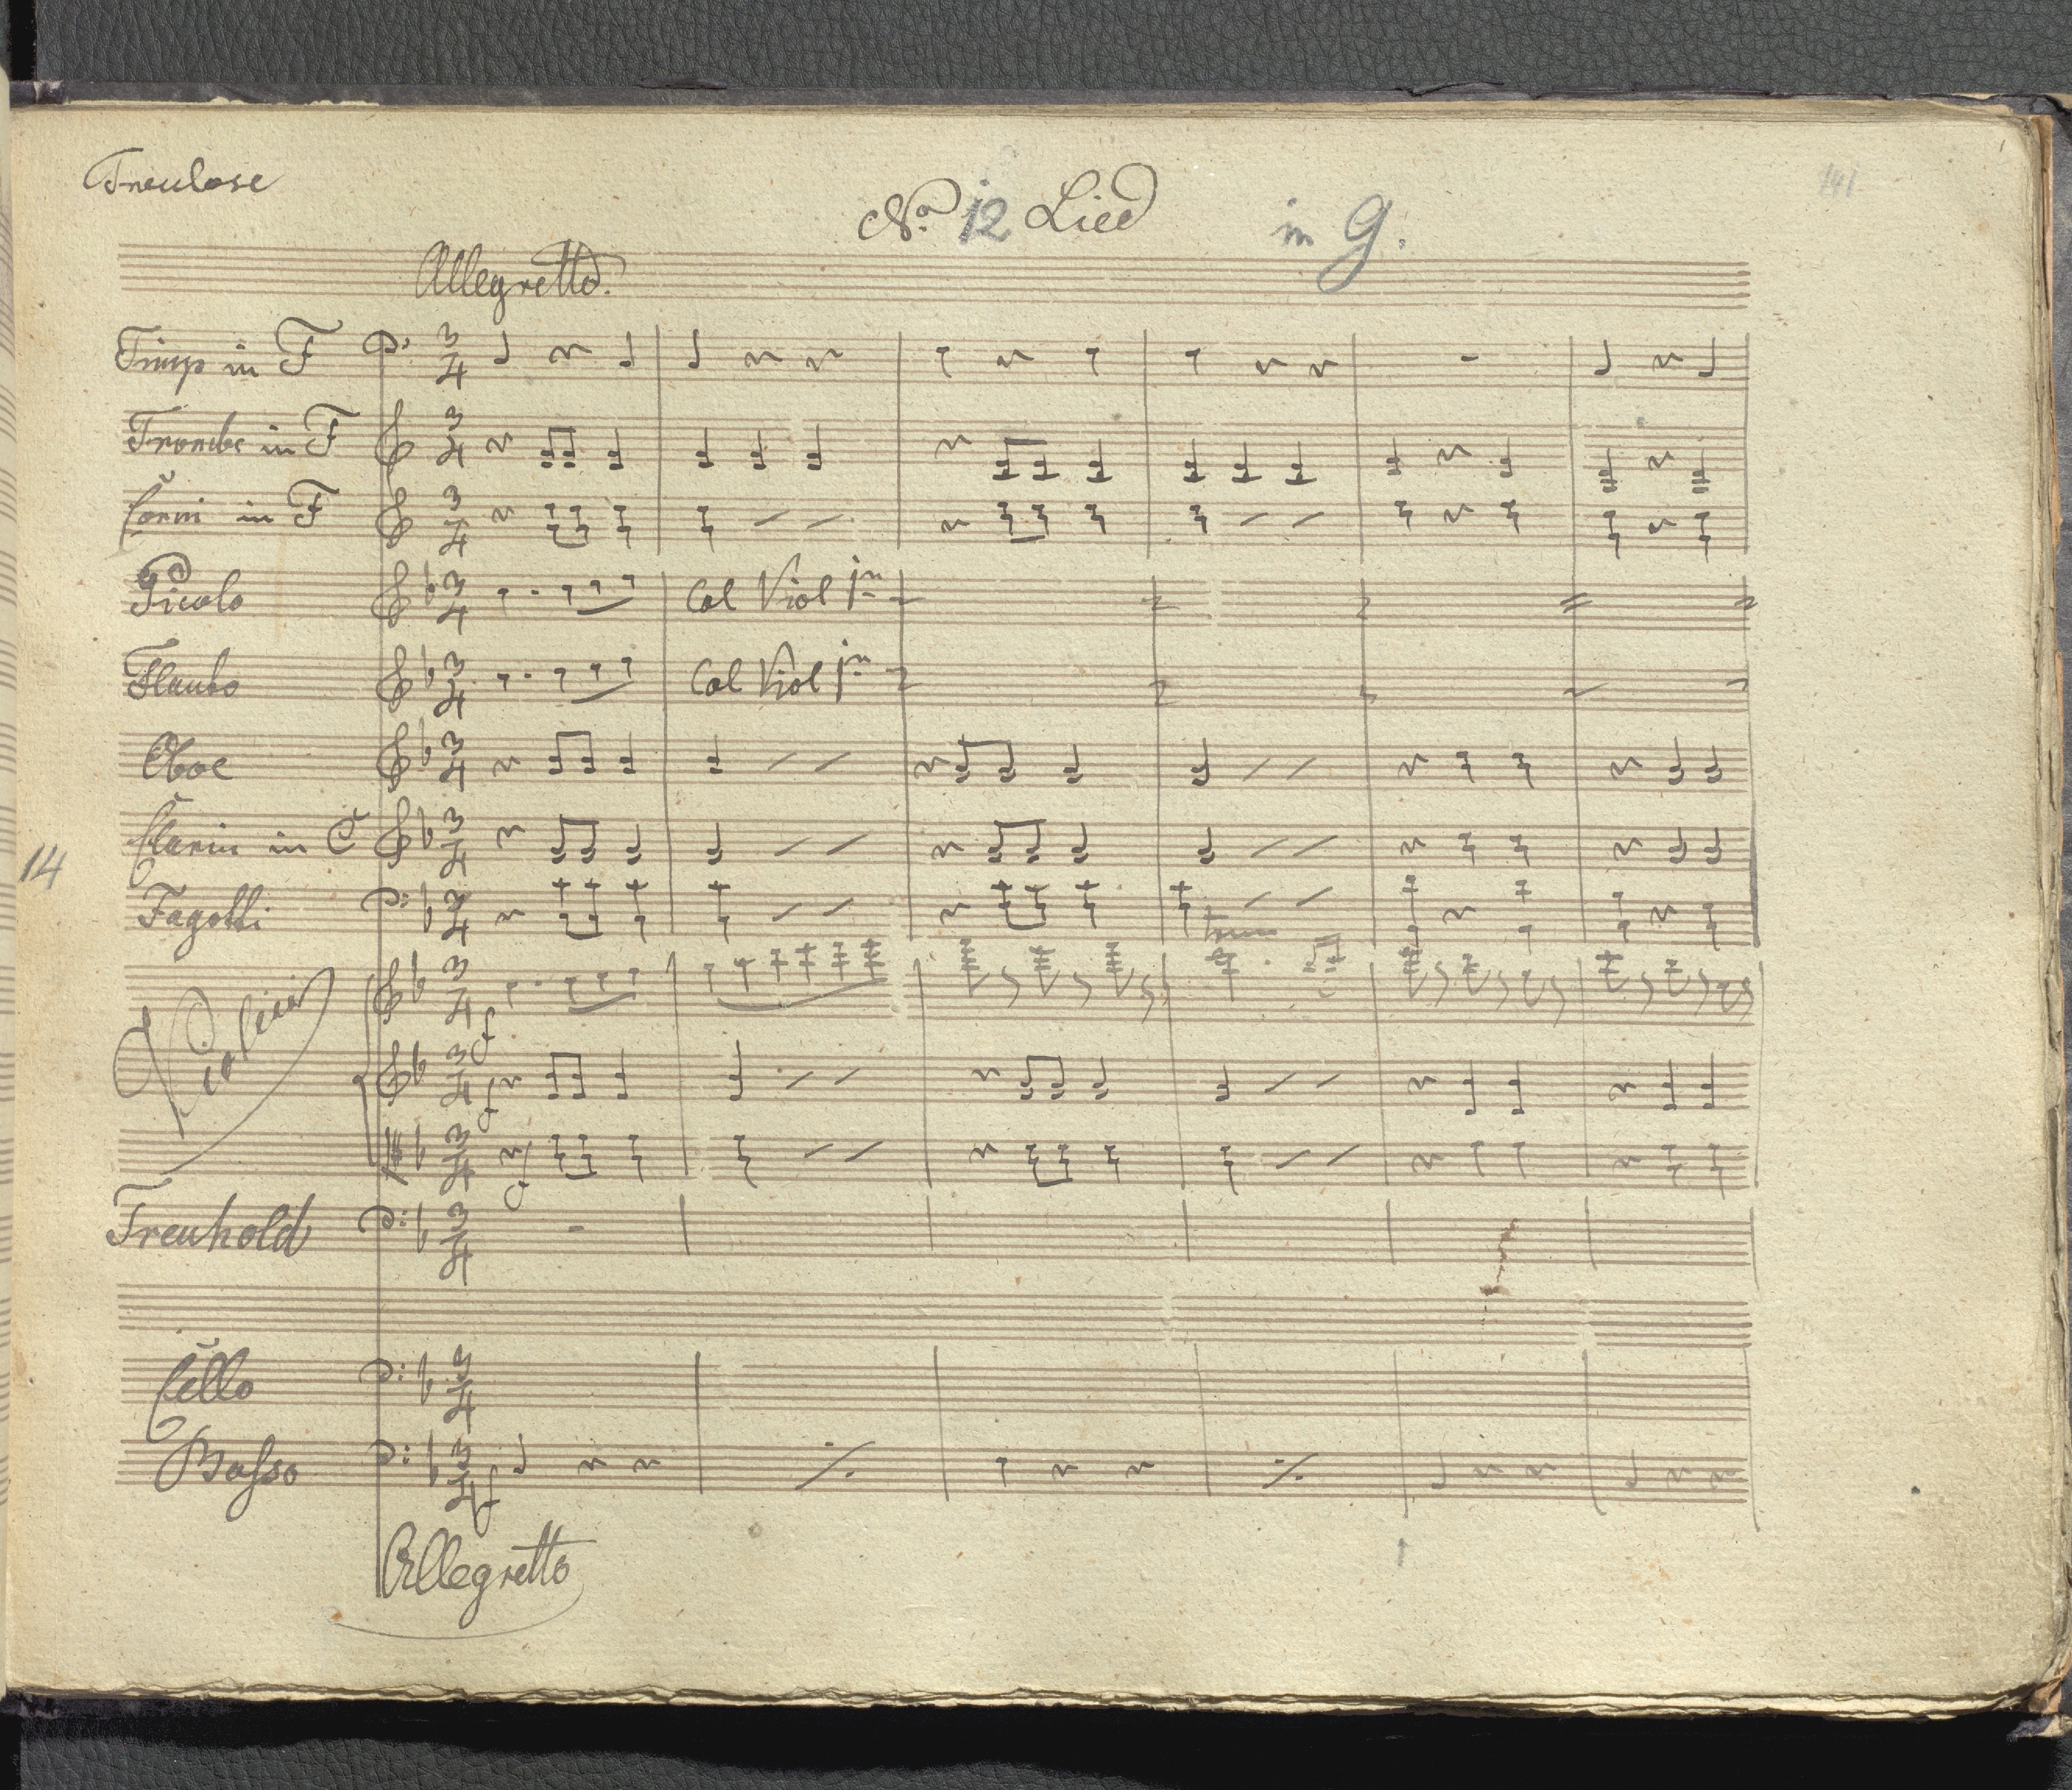 Treulose
No. 12 Lied in G.
141
Allegretto.
Timp in F
Trombe in F
Corni in F
Picolo
Col Viol 1mo
Flauto
Col Viol 1mo
Oboe
Clarin in C
14
Fagotti
Violini
f
f
f
Treuhold
Cello
Basso
f
Allegretto